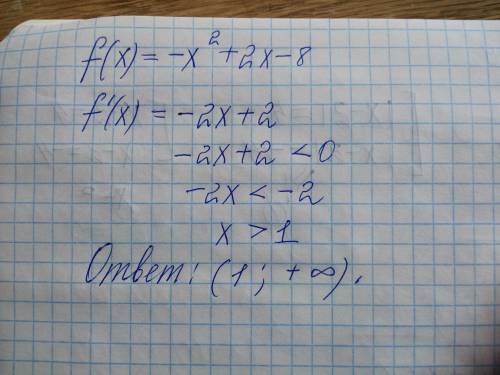 f(x) = -x² + 2x - 8
f'(x) = -2x + 2
-2x + 2 < 0
-2x < -2
x > 1
Ответ: (1; +∞).